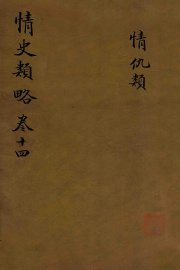 情仇類
情史類略 卷十四